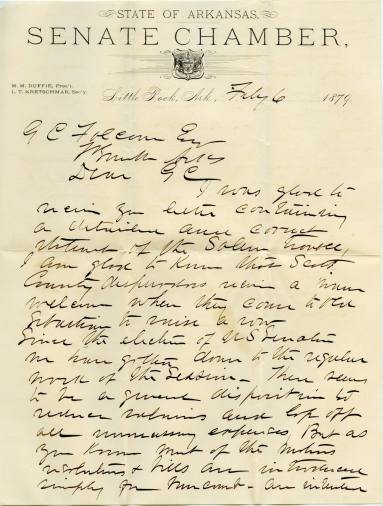 STATE OF ARKANSAS,
SENATE CHAMBER,
M. M. DUFFIE, Pres't.
L. T. KRETSCHMAR, Sec'y.
Little Rock, Ark., Feby 6 1879
G C Esq
Ft Smith Arks
Dear G C
I was glad to
receive your letter containing
a detailed and correct
statement of the
I am glad to know that Scott
County receive a warm
welcome when they come to old
Sebastian to raise a row
Since the election of US Senator
we have gotten down to the regular
work of the Session - There seems
to be a general disposition to
reduce salaries and lop off
all unnecessary expenses But as
you know most of the motions
resolutions & bills are introduced
simply for buncomb - are intended